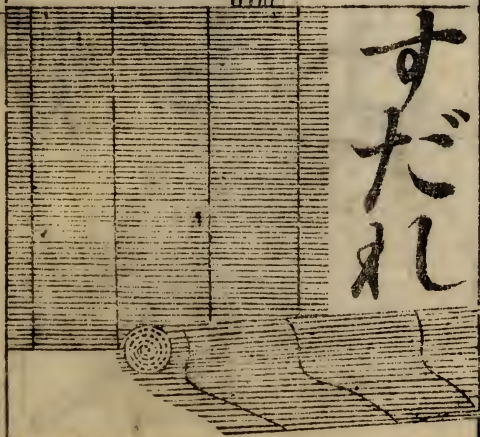 すだれ